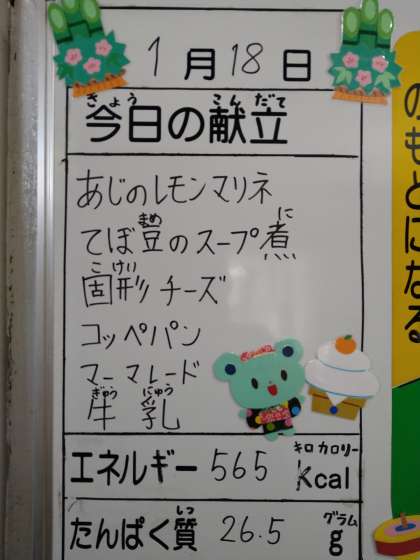 1月18日
きょう こんだて
今日の献立
あじのレモンマリネ
まめ に
てぼ豆のスープ煮
こけい
固形チーズ
コッペパン
マーマレード
ぎゅうにゅう
牛乳
キロカロリー
エネルギー 565 kcal
しつ グラム
たんぱく質 26.5 g
のもとになる